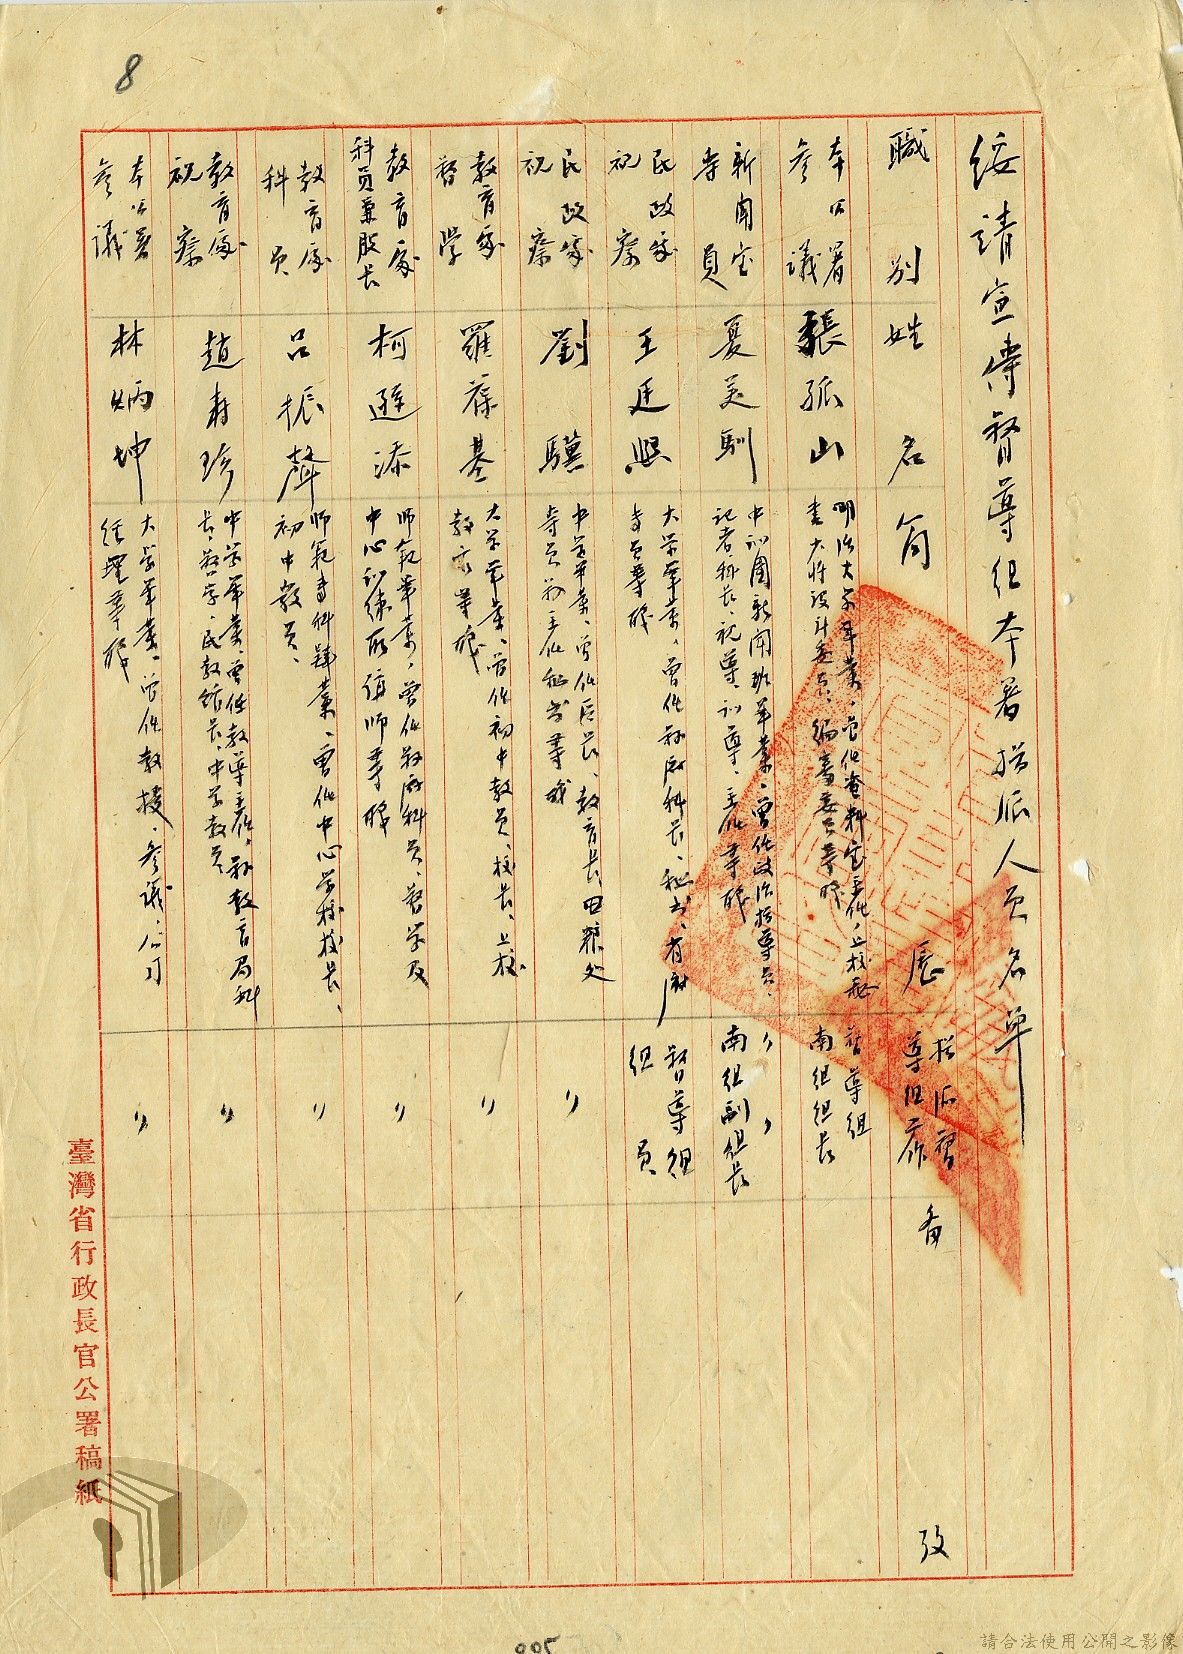 8
綏靖宣傳督導組本署指派人員名單
職別
姓名
簡歷
指派督導組工作
備攷
本公署參議
張孤山
明治大學畢業、曾任資料室主任、上校秘書、大將設計委員、編審委員等職
督導組南組組長
新聞室專員
夏美馴
中訓團新聞班畢業、曾任政治指導員、記者科長、視導、訓導、主任等職
〃〃南組副組長
民政處視察
王廷熙
大學畢業、曾任縣府科長、秘書、省府專員等職
督導組組員
民政處視察
劉驥
中學畢業、曾任區長、教育長、田糧處專員、主任秘書等職
〃
教育處督學
羅葆基
大學畢業、曾任初中教員、校長、上校教官等職
〃
教育處科員兼股長
柯遜添
師範畢業、曾任縣府科員、督學及中心訓練所講師等職
〃
教育處科員
呂振聲
師範專科肄業、曾任中心學校校長、初中教員、
〃
教育處視察
趙壽珍
中學畢業、曾任教導主任、縣教育局科長、督學、民教館長、中學教員
〃
本公署參議
林炳坤
大學畢業、曾任教授、參議、公司經理等職
〃
臺灣省行政長官公署稿紙
請合法使用公開之影像